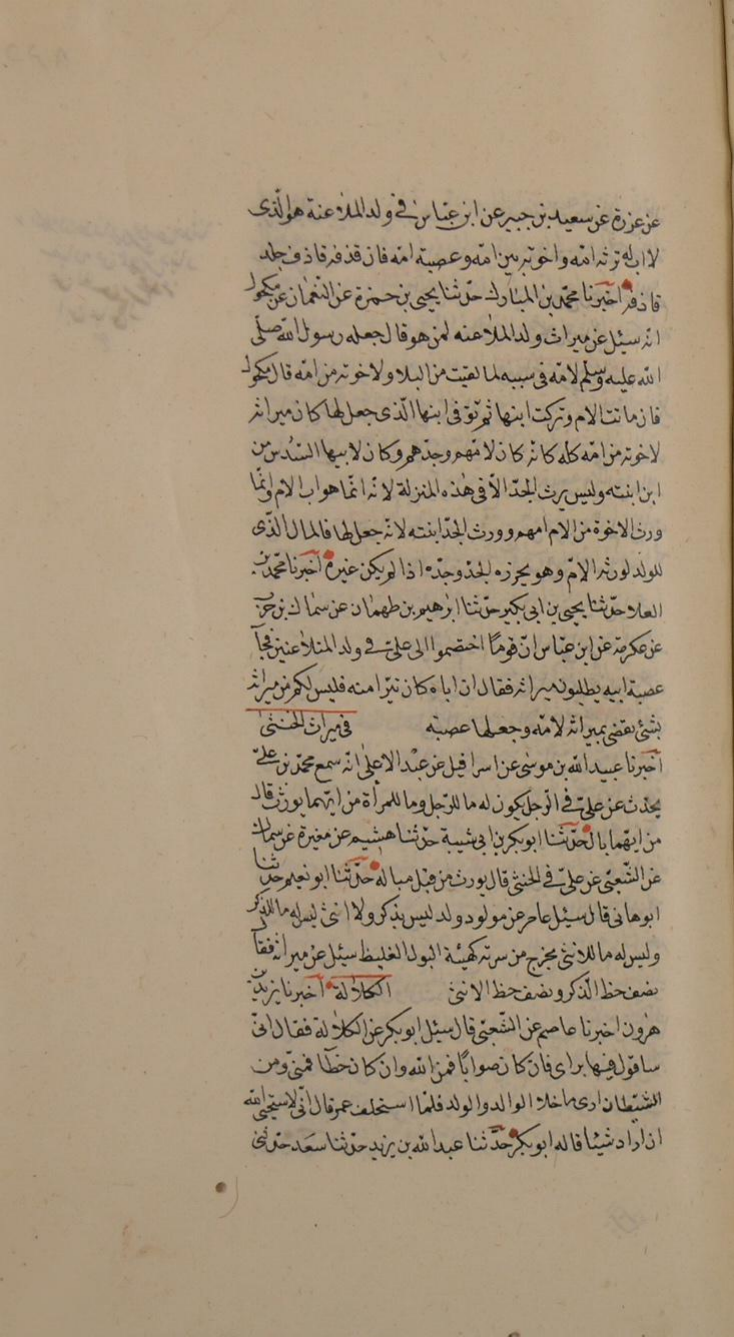 عن عزرة عن سعيد بن جبير عن ابن عباس في ولد الملاعنة هو الذى
لا اب له ترثه امه واخوته من امه وعصبة امه فان قذفه قاذف جلد
قاذفه اخبرنا محمد بن المبارك حدثنا يحيى بن حمزة عن النعمان عن مكحول
انه سئل عن ميراث ولد الملاعنه لمن هو قال جعله رسول الله صلى
الله عليه وسلم لامه في سببه لما لقيت من البلاء ولاخوته من امه قال مكحول
فان ماتت الام وتركت ابنها ثم توفى ابنها الذى جعل لها كان ميراثه
لاخوته من امه كله كانه كان لامهم وجدهم وكان لابيها السدس من
ابن ابنته وليس يرث الجد الا في هذه المنزلة لانه انما هو اب الام وانما
ورث الاخوة من الام امهم وورث الجد ابنته لانه جعل لها فالمال الذى
للولد لورثه الام وهو يحرزه الجد وحده اذا لم يكن غيره اخبرنا محمد بن
العلا حدثنا يحيى بن ابى بكير حدثنا ابرهيم بن طهمان عن سماك بن حرب
عن عكرمة عن ابن عباس ان قوما اختصموا الى على في ولد المتلاعنين فجآ
عصبة ابيه يطلبون ميراثه فقال ان اباه كان تبرا منه فليس لكم من ميراثه
بشئ يقضى بميراثه لامه وجعلها عصبته في ميراث الخنثى
اخبرنا عبيد الله بن موسى عن اسرائيل عن عبد الاعلى انه سمع محمد بن على
يحدث عن على في الرجل يكون له ما للرجل وما للمرأة من ايهما يورث قال
من ايهما بال حدثنا ابو بكر بن ابى شيبة حدثنا هشيم عن مغيرة عن سماك
عن الشعبى عن على في الخنثى قال يورث من قبل مباله حدثنا ابو نعيم حدثنا
ابو هانى قال سئل عامر عن مولود ولد ليس بذكر ولا انثى ليس له ما للذكر
وليس له ما للانثى يخرج من سرته كهيئة البول الغليظ سئل عن ميراثه فقال
نصف حظ الذكر ونصف حظ الانثى الكلالة اخبرنا يزيد بن
هرون اخبرنا عاصم عن الشعبى قال سئل ابو بكر عن الكلالة فقال انى
ساقول فيها براى فان كان صوابا فمن الله وان كان خطآ فمنى ومن
الشيطان ارى ما خلا الوالد والولد فلما استخلف عمر قال انى لاستحيى الله
ان اراد شيئا قاله ابو بكر حدثنا عبد الله بن يزيد حدثنا سعد حدثنى